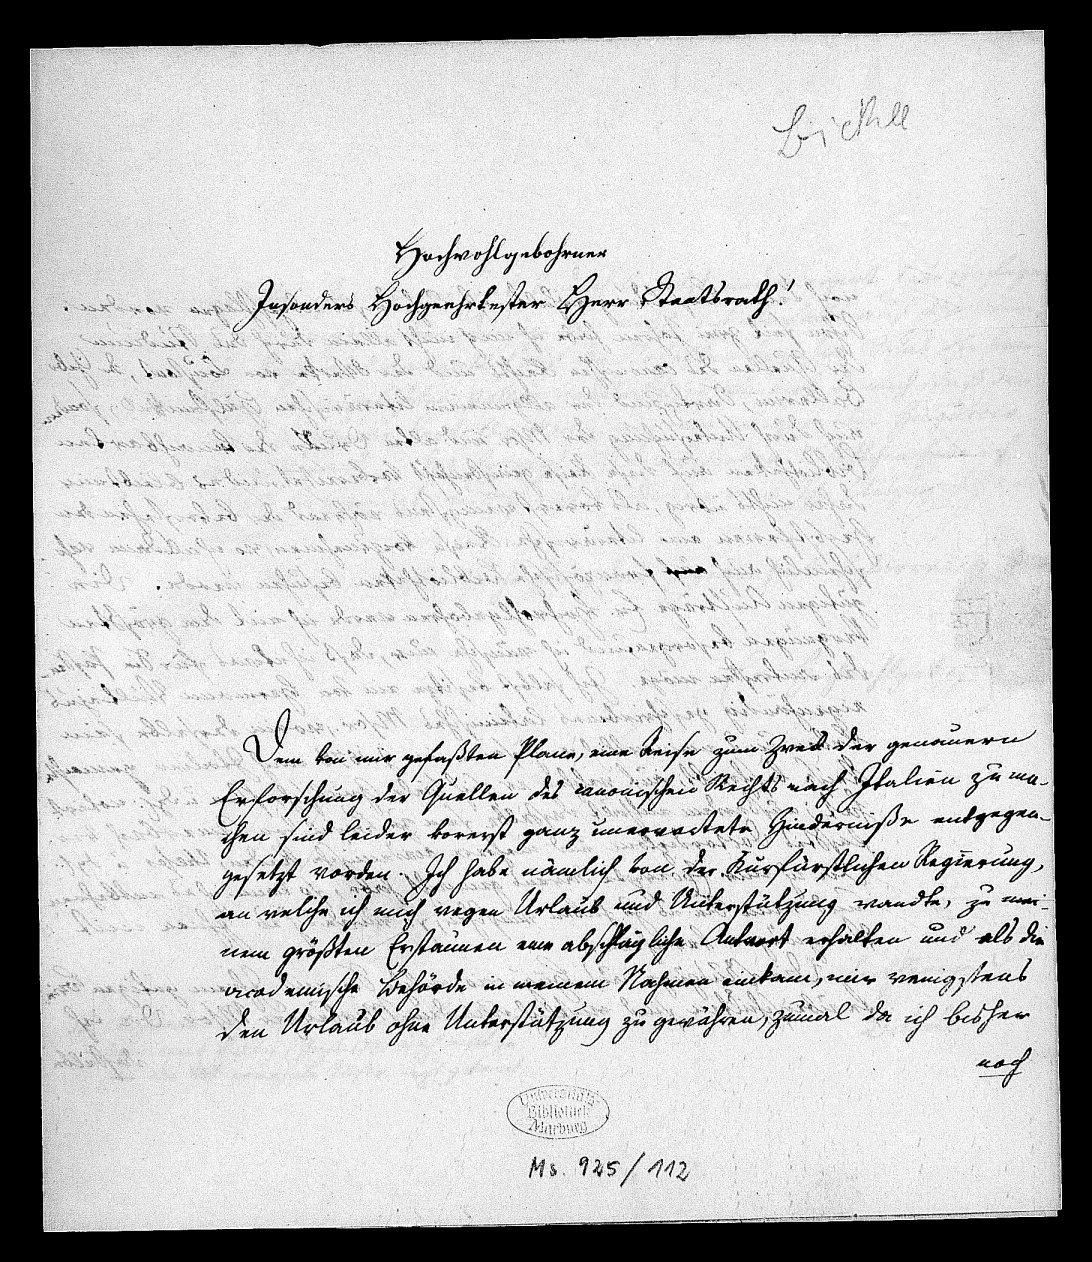 Bickell
Hochwohlgebohrner
Insonders Hochgeehrtester Herr Staatsrath!
Dem von mir gefaßten Plane, eine Reise zum Zweck der genauern
Erforschung der Quellen des canonischen Rechts nach Italien zu ma-
chen sind leider vorerst ganz unerwartete Hinderniße entgegen-
gesetzt worden. Ich habe nämlich von der Kurfürstlichen Regierung,
an welche ich mich wegen Urlaub und Unterstützung wandte, zu mei-
nem größten Erstaunen eine abschlägliche Antwort erhalten und als die
academische Behörde in meinem Nahmen einkam, mir wenigstens
den Urlaub ohne Unterstützung zu gewähren, zumal da ich bisher
noch
Universitäts
Bibliothek
Marburg
Ms. 925/112